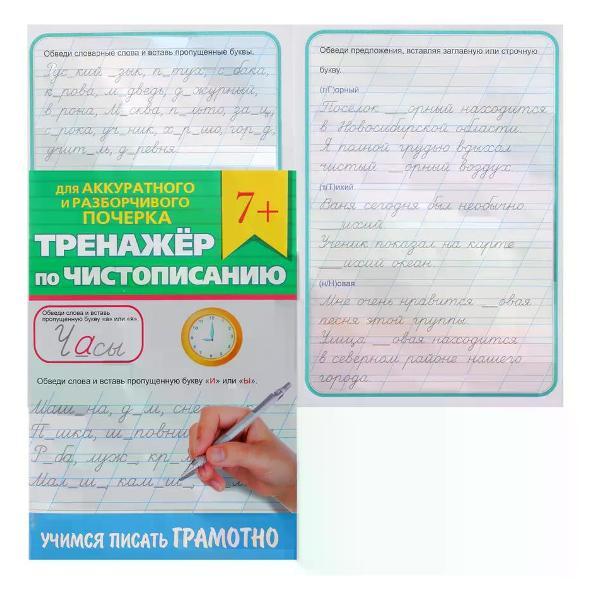 Обведи словарные слова и вставь пропущенные буквы.
Рус_кий _зык, п_тух, с_бака,
к_рова, м_дведь, д_журный,
в_рона, М_сква, п_льто, за_ц,
с_рока, уч_ник, х_р_шо, гор_д,
учит_ль, д_ревня.
ДЛЯ АККУРАТНОГО
И РАЗБОРЧИВОГО
ПОЧЕРКА
7+
ТРЕНАЖЁР
ПО ЧИСТОПИСАНИЮ
Обведи слова и вставь
пропущенную букву «а» или «я».
Часы
Обведи слова и вставь пропущенную букву «И» или «Ы».
Маш_на, д_м, сне
П_шка, ш_повни
Р_ба, муж_, кр
Мал_ш, кам_ш,
УЧИМСЯ ПИСАТЬ ГРАМОТНО
Обведи предложения, вставляя заглавную или строчную
букву.
(г/Г)орный
Посёлок __орный находится
в Новосибирской области.
Я полной грудью вдыхал
чистый __орный воздух.
(т/Т)ихий
Ваня сегодня был необычно
__ихий.
Ученик показал на карте
__ихий океан.
(н/Н)овая
Мне очень нравится __овая
песня этой группы.
Улица __овая находится
в северном районе нашего
города.